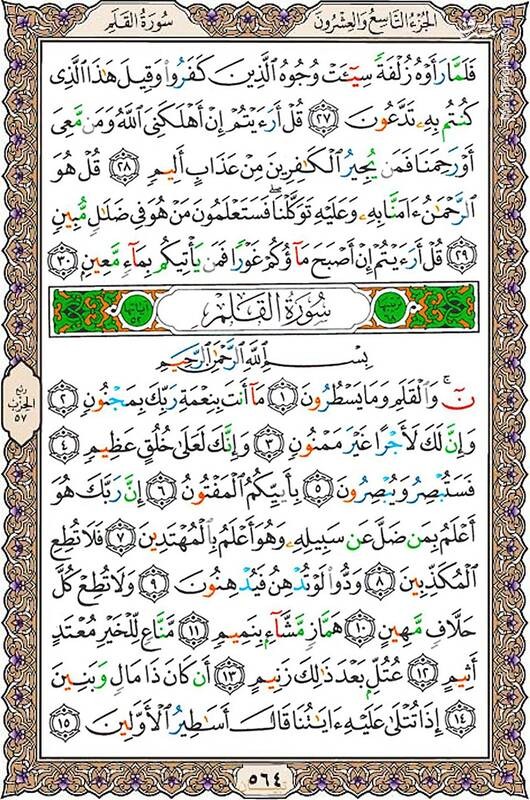 الجُزءُ التَّاسِعُ وَالعِشْرُونَ
سُورَةُ القَلَمِ
فَلَمَّا رَأَوْهُ زُلْفَةً سِيٓـَٔتْ وُجُوهُ الَّذِينَ كَفَرُوا۟ وَقِيلَ هَٰذَا الَّذِى
كُنتُم بِهِۦ تَدَّعُونَ ٢٧ قُلْ أَرَءَيْتُمْ إِنْ أَهْلَكَنِىَ اللَّهُ وَمَن مَّعِىَ
أَوْ رَحِمَنَا فَمَن يُجِيرُ الْكَٰفِرِينَ مِنْ عَذَابٍ أَلِيمٍ ٢٨ قُلْ هُوَ
الرَّحْمَٰنُ ءَامَنَّا بِهِۦ وَعَلَيْهِ تَوَكَّلْنَا ۖ فَسَتَعْلَمُونَ مَنْ هُوَ فِى ضَلَٰلٍ مُّبِينٍ
٢٩ قُلْ أَرَءَيْتُمْ إِنْ أَصْبَحَ مَآؤُكُمْ غَوْرًا فَمَن يَأْتِيكُم بِمَآءٍ مَّعِينٍ ٣٠
سُورَةُ القَلَمِ
بِسْمِ اللَّهِ الرَّحْمَٰنِ الرَّحِيمِ
نٓ ۚ وَالْقَلَمِ وَمَا يَسْطُرُونَ ١ مَآ أَنتَ بِنِعْمَةِ رَبِّكَ بِمَجْنُونٍ ٢
وَإِنَّ لَكَ لَأَجْرًا غَيْرَ مَمْنُونٍ ٣ وَإِنَّكَ لَعَلَىٰ خُلُقٍ عَظِيمٍ ٤
فَسَتُبْصِرُ وَيُبْصِرُونَ ٥ بِأَييِّكُمُ الْمَفْتُونُ ٦ إِنَّ رَبَّكَ هُوَ
أَعْلَمُ بِمَن ضَلَّ عَن سَبِيلِهِۦ وَهُوَ أَعْلَمُ بِالْمُهْتَدِينَ ٧ فَلَا تُطِعِ
الْمُكَذِّبِينَ ٨ وَدُّوا۟ لَوْ تُدْهِنُ فَيُدْهِنُونَ ٩ وَلَا تُطِعْ كُلَّ
حَلَّافٍ مَّهِينٍ ١٠ هَمَّازٍ مَّشَّآءٍ بِنَمِيمٍ ١١ مَّنَّاعٍ لِّلْخَيْرِ مُعْتَدٍ
أَثِيمٍ ١٢ عُتُلٍّ بَعْدَ ذَٰلِكَ زَنِيمٍ ١٣ أَن كَانَ ذَا مَالٍ وَبَنِينَ
١٤ إِذَا تُتْلَىٰ عَلَيْهِ ءَايَٰتُنَا قَالَ أَسَٰطِيرُ الْأَوَّلِينَ ١٥
ربع
الحزب
٥٧
٥٦٤